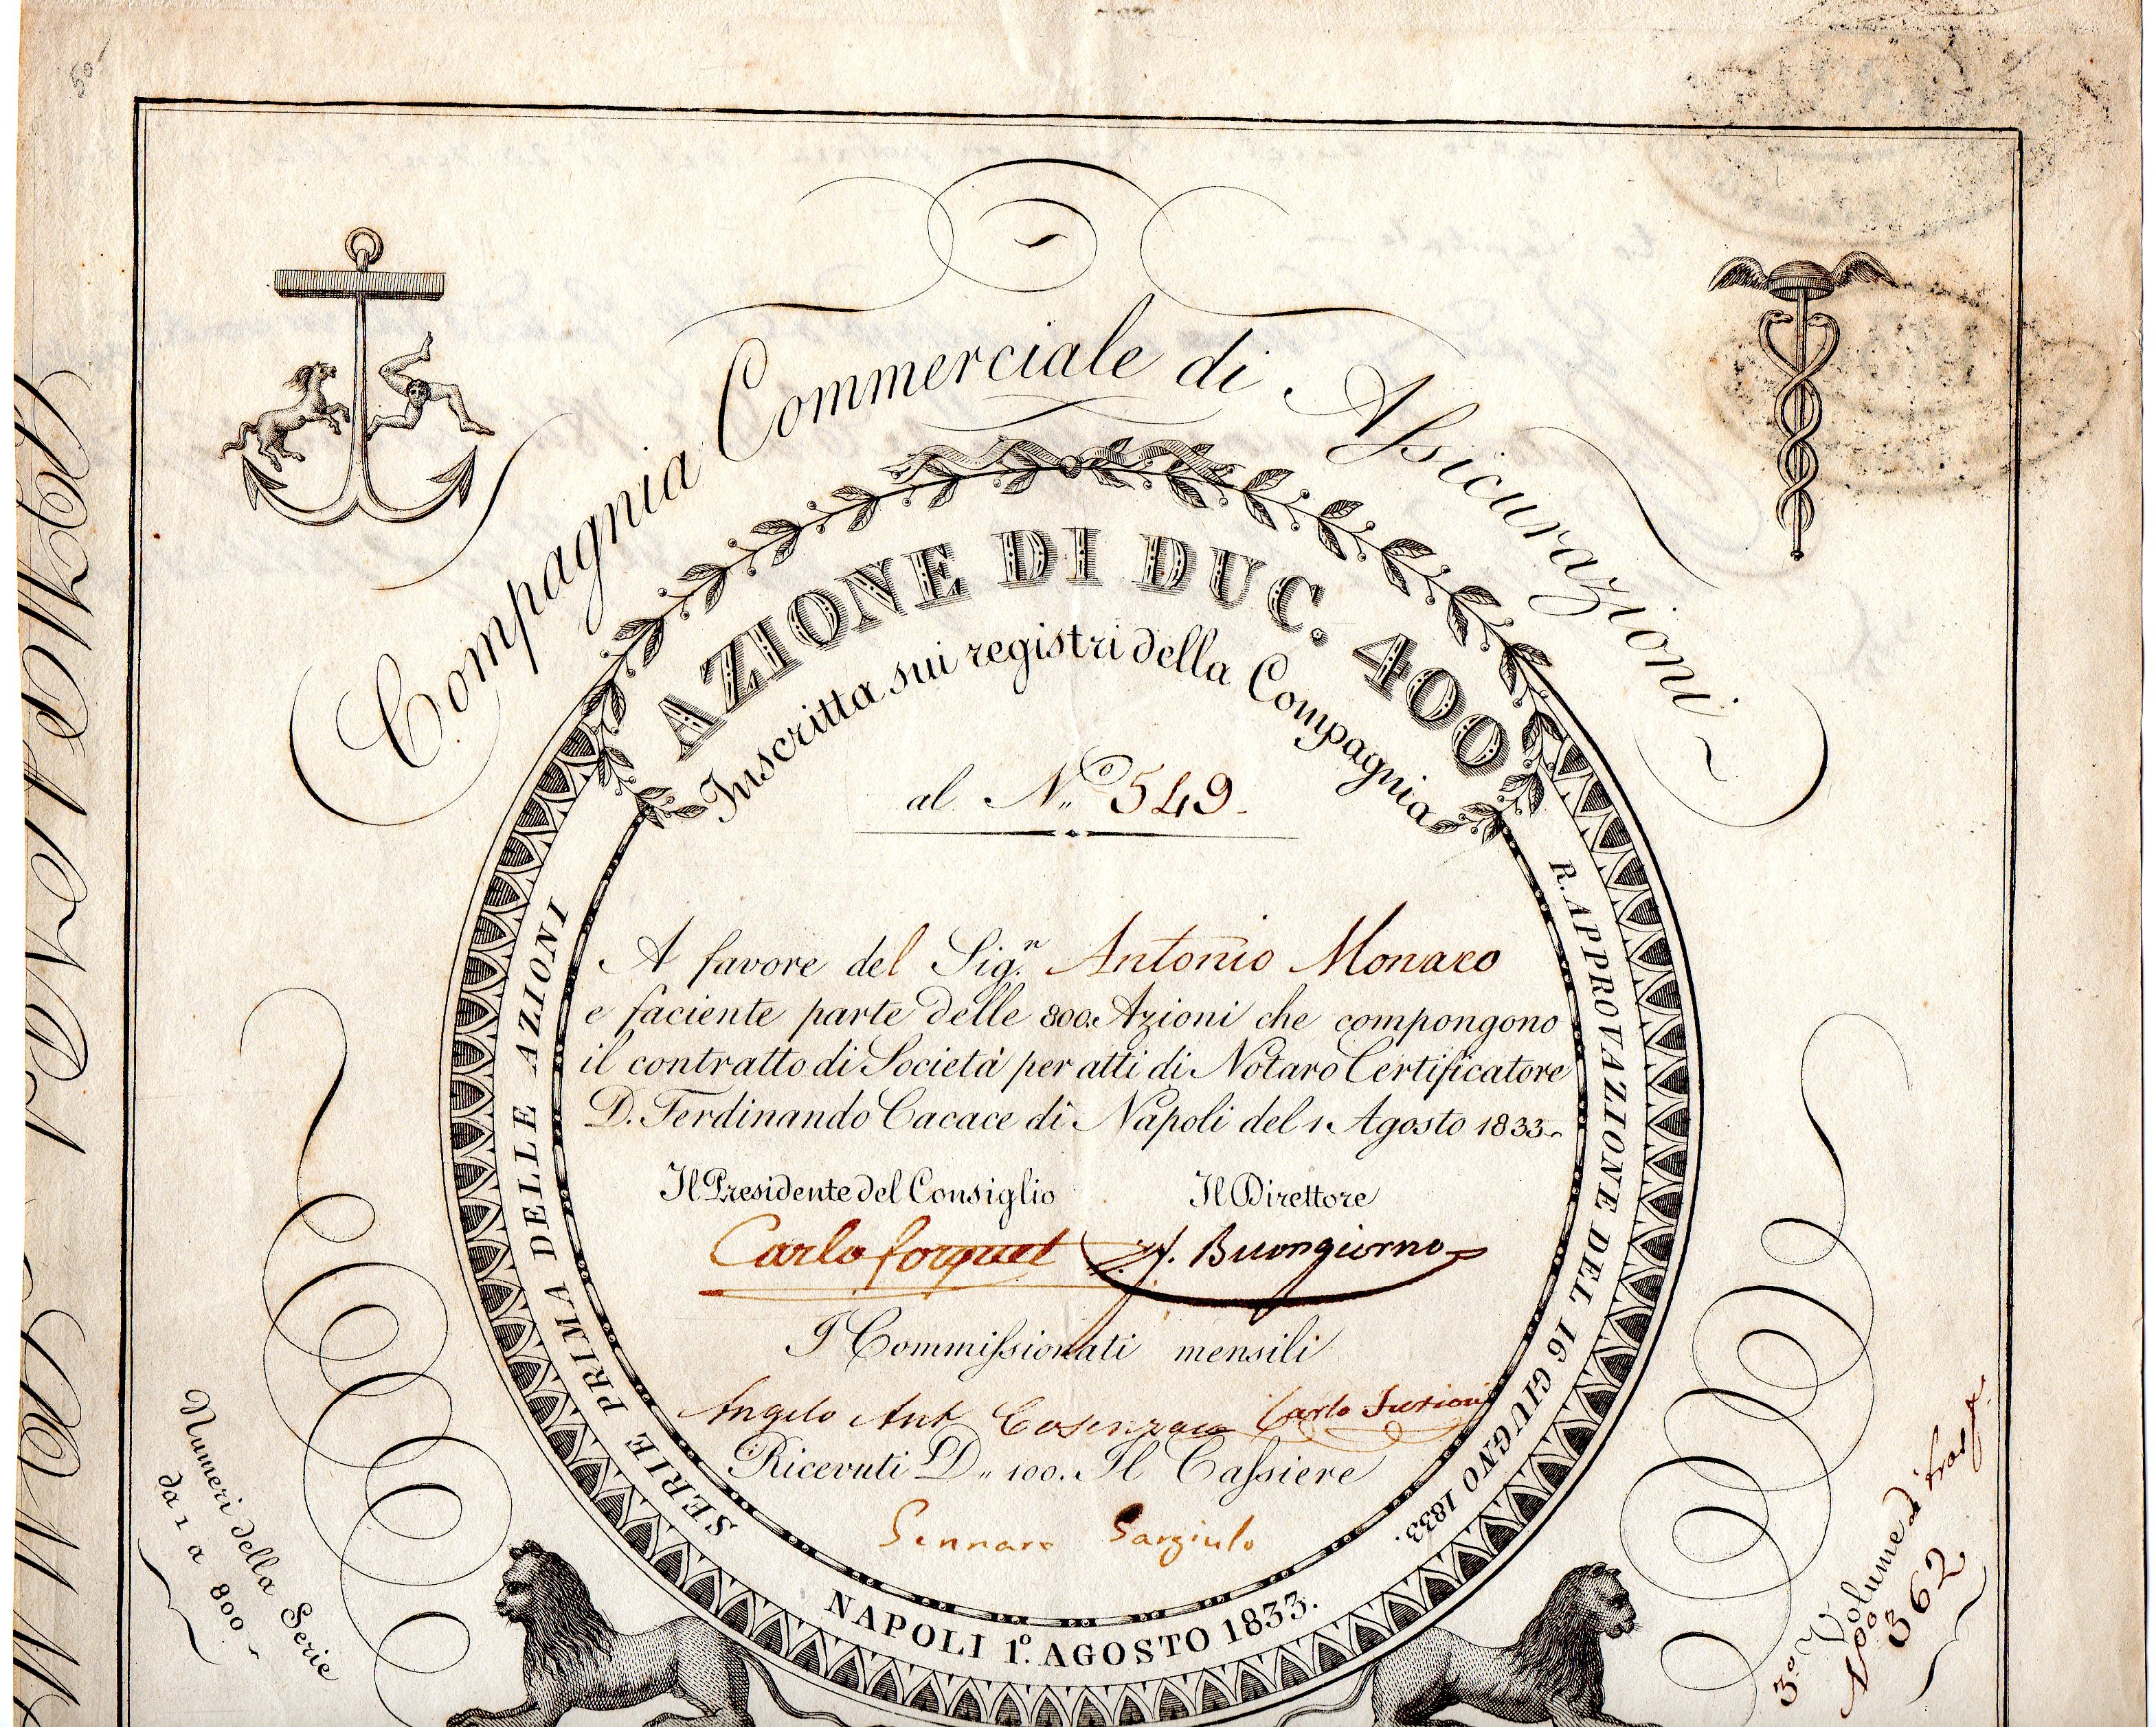 50
Compagnia Commerciale di Assicurazioni
AZIONE DI DUC. 400
Inscritta sui registri della Compagnia
al N.º 549.
A favore del Sig.r Antonio Monaco
e faciente parte delle 800 Azioni che compongono
il contratto di Società per atti di Notaro Certificatore
D. Ferdinando Cacace di Napoli del 1 Agosto 1833
Il Presidente del Consiglio Il Direttore
Carlo Forquet Buongiorno
I Commissionati mensili
Angelo Ant Carlo
Ricevuti D. 100. Il Cassiere
Gennaro Gargiulo
SERIE PRIMA DELLE AZIONI
R. APPROVAZIONE DEL 16 GIUGNO 1833.
NAPOLI 1º. AGOSTO 1833.
Numeri della Serie
da 1 a 800
3º Volume di trasf.
Nº 362